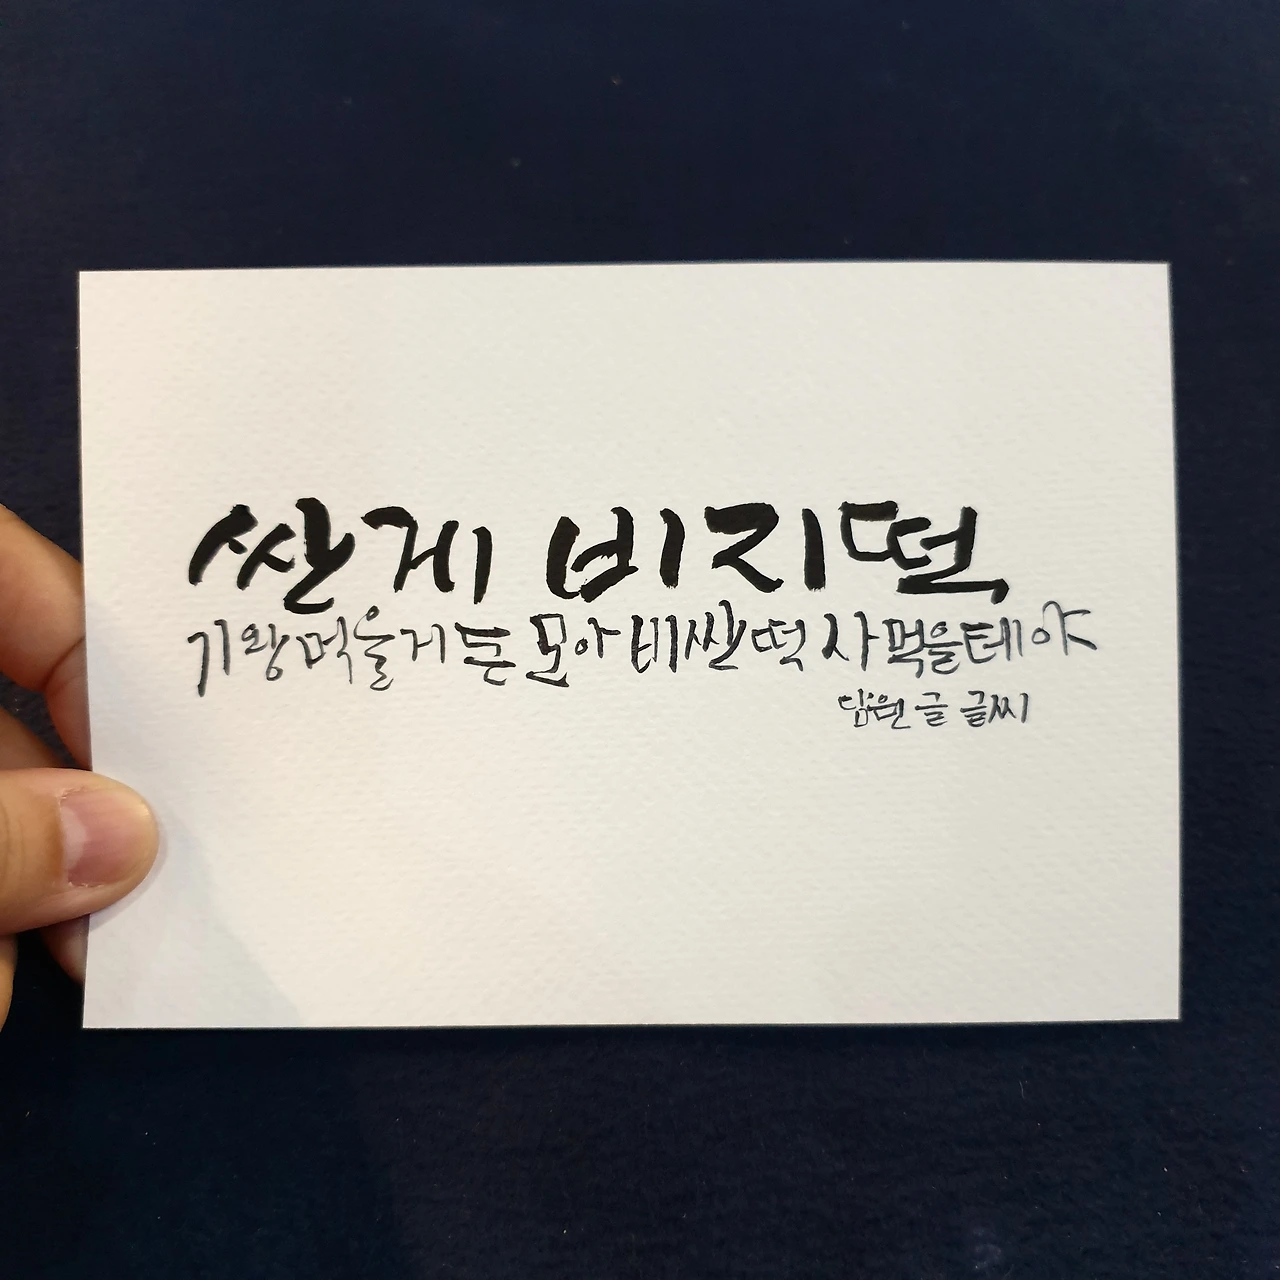 싼게 비지떡
기왕먹을거 돈 모아 비싼떡 사먹을테야
담원 글 글씨